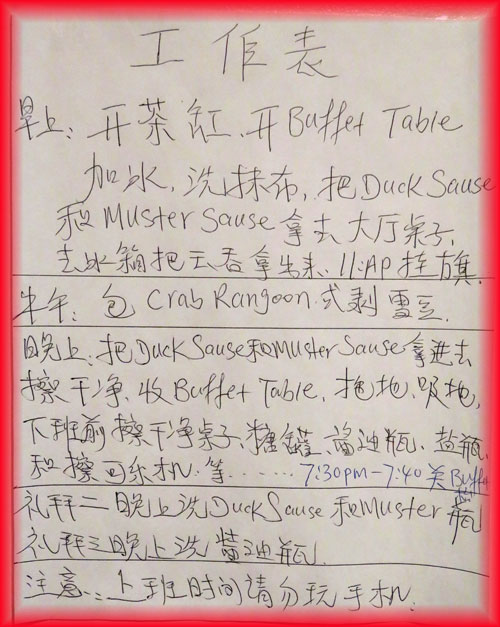 工作表
早上:开茶缸、开Buffet Table
加冰,洗抹布,把Duck Sause
和Muster Sause拿去大厅桌子,
去冰箱把云吞拿出来.11:AP挂旗.
牛午:包Crab Rangoon.式剥雪豆.
晚上:把Duck Sause和Muster Sause拿进去
擦干净、收Buffet Table、拖地、吸地,
下班前擦干净桌子、糖罐、酱油瓶、盐瓶
和擦可乐机.等…… 7:30pm-7:40关Buffet
礼拜二晚上洗Duck Sause和Muster瓶
礼拜三晚上洗酱油瓶
注意:上班时间请勿玩手机.